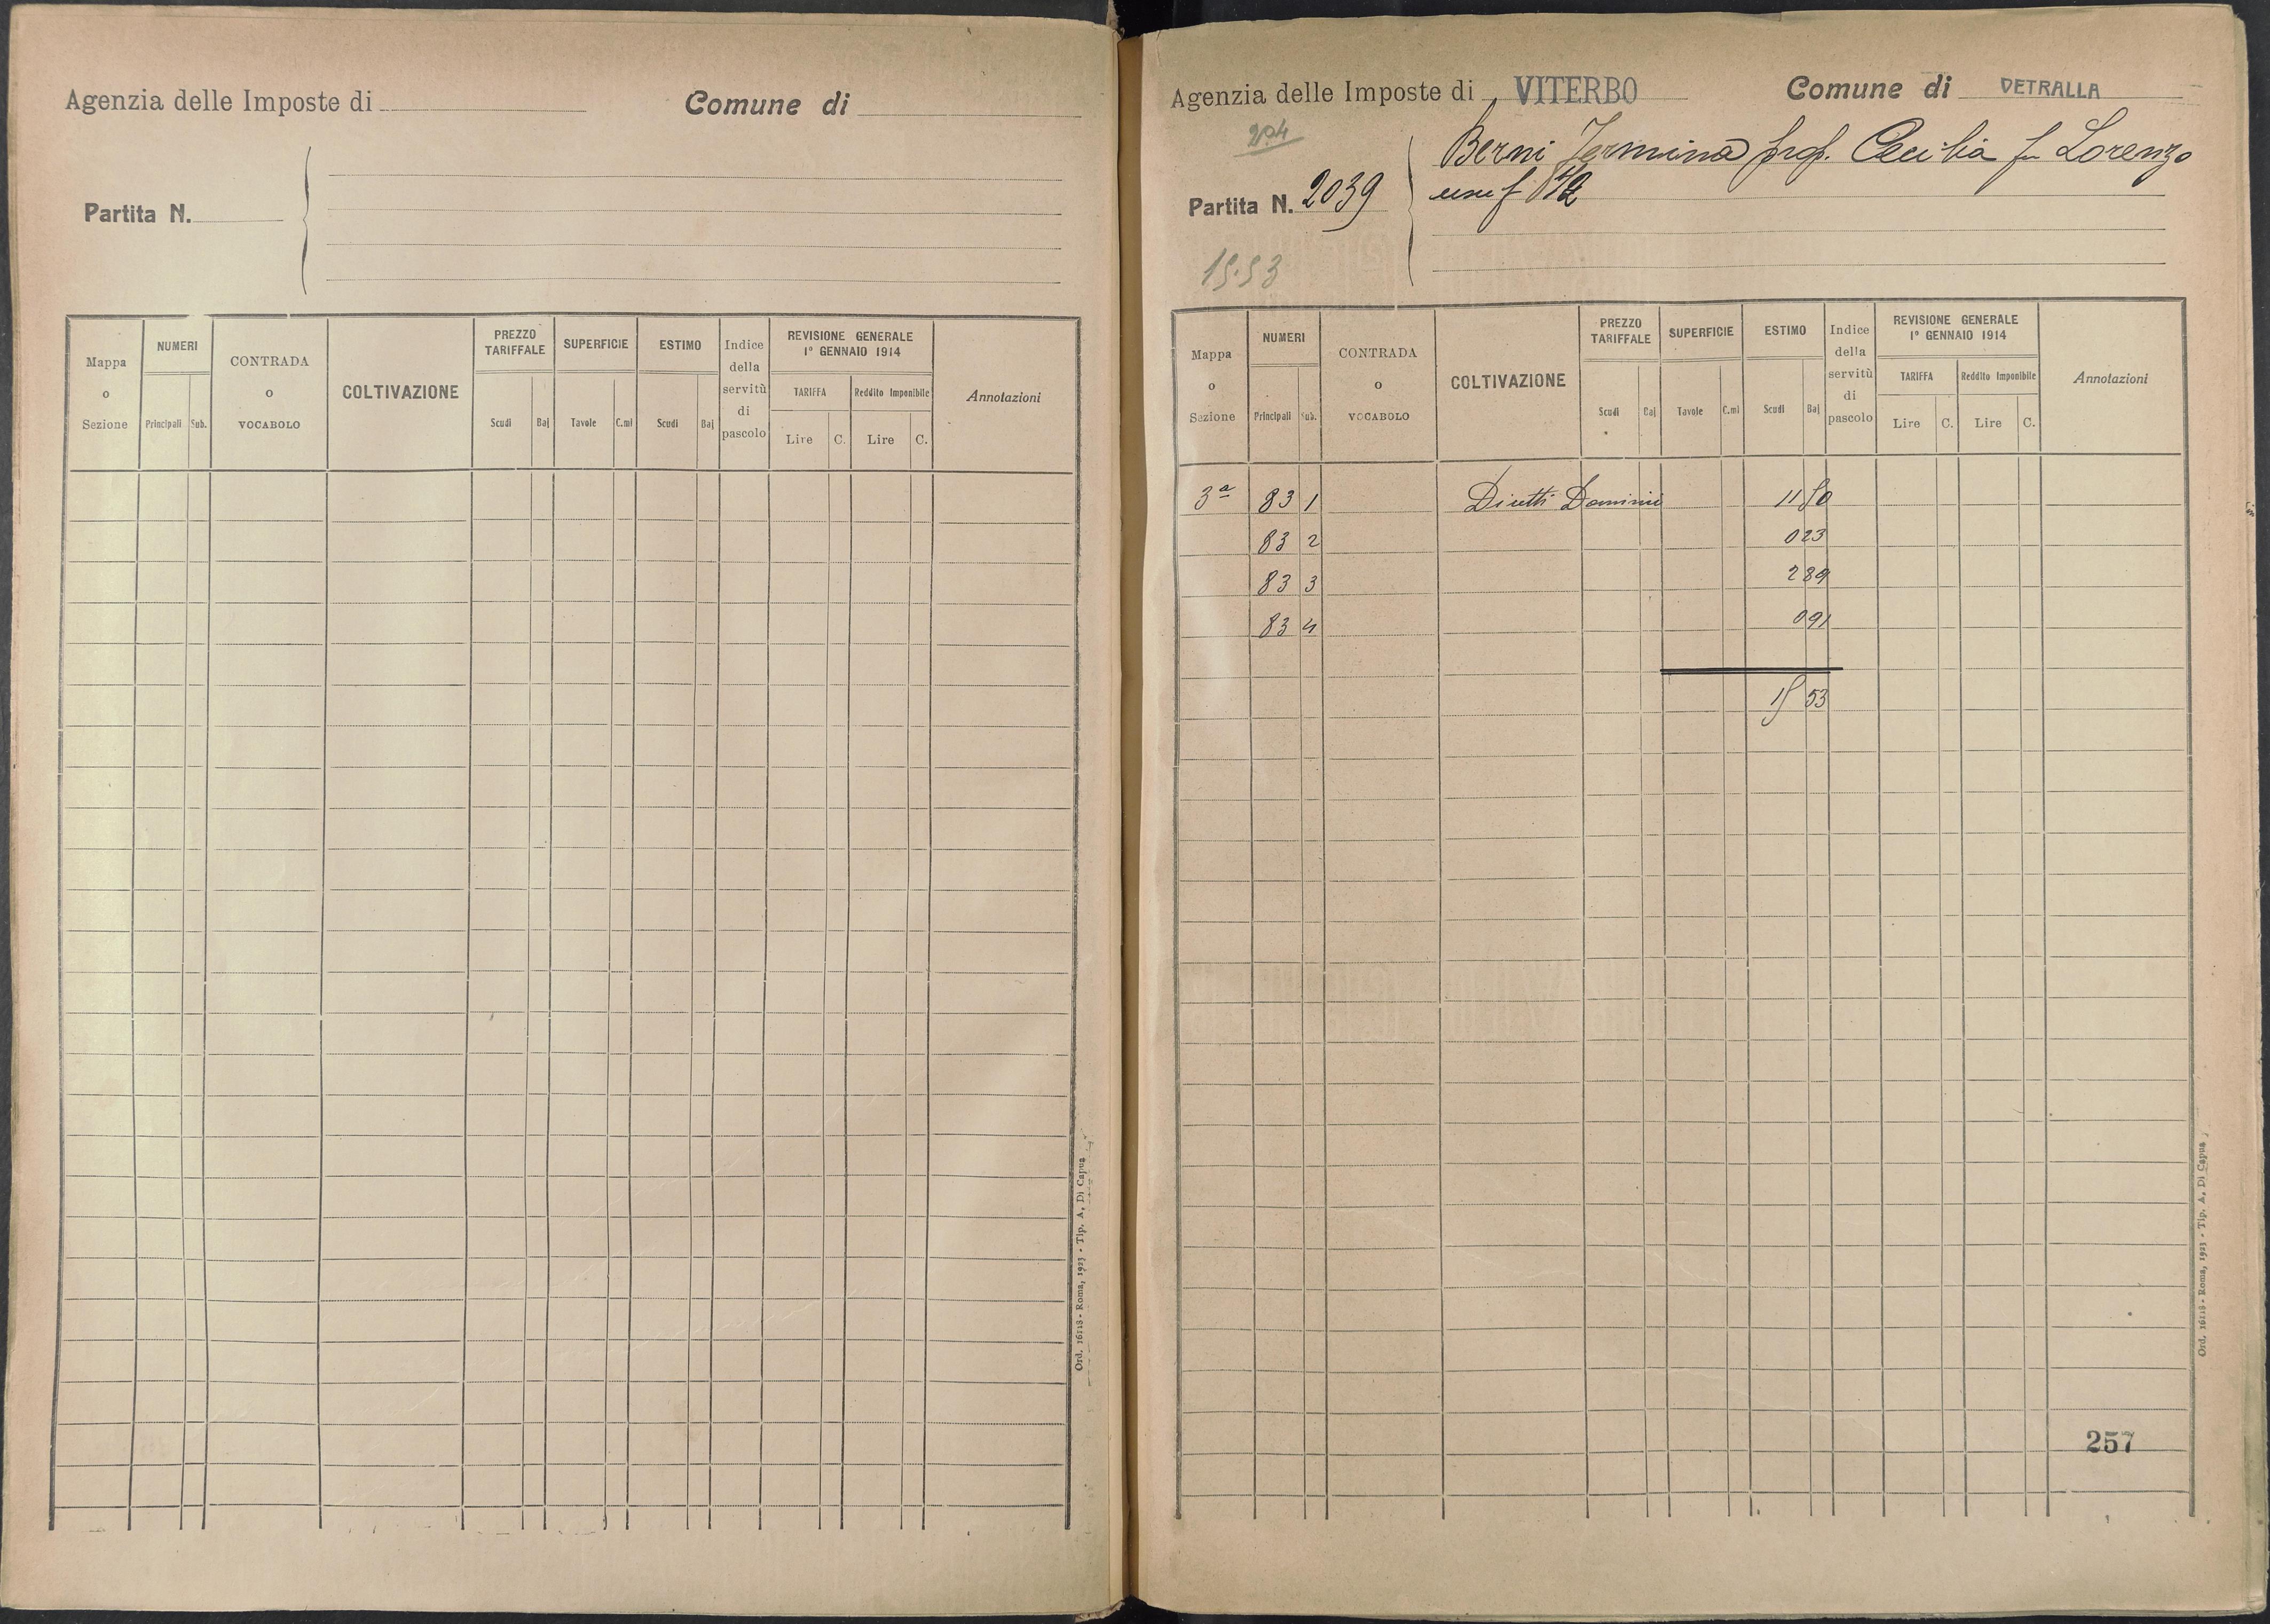 Agenzia delle Imposte di
Comune di
Partita N.
Mappa o Sezione
NUMERI
Principali Sub.
CONTRADA o VOCABOLO
COLTIVAZIONE
PREZZO TARIFFALE
Scudi Baj
SUPERFICIE
Tavole C.mi
ESTIMO
Scudi Baj
Indice della servitù di pascolo
REVISIONE GENERALE
1° GENNAIO 1914
TARIFFA
Lire C.
Reddito Imponibile
Lire C.
Annotazioni
Ord. 16118 - Roma, 1923 - Tip. A. Di Capua
Agenzia delle Imposte di VITERBO
Comune di VETRALLA
204
Partita N. 2039
Berni Cecilia fu Lorenzo
usuf
15.53
Mappa o Sezione
NUMERI
Principali Sub.
CONTRADA o VOCABOLO
COLTIVAZIONE
PREZZO TARIFFALE
Scudi Baj
SUPERFICIE
Tavole C.mi
ESTIMO
Scudi Baj
Indice della servitù di pascolo
REVISIONE GENERALE
1° GENNAIO 1914
TARIFFA
Lire C.
Reddito Imponibile
Lire C.
Annotazioni
3ª 83 1 Diretti Dominii 11 50
83 2 0 23
83 3 2 89
83 4 0 91
15 53
257
Ord. 16118 - Roma, 1923 - Tip. A. Di Capua